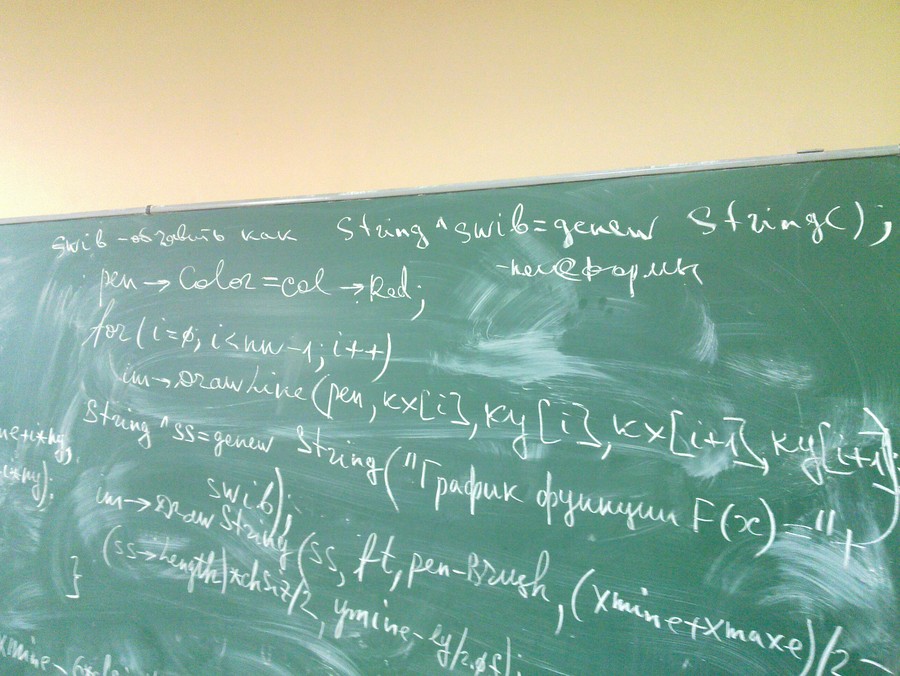 swib - объявить как String ^ swib = gcnew String();
- поле формы
pen → Color = col → Red;
for (i=0; i<nn-1; i++)
im → DrawLine (pen, kx[i], ky[i], kx[i+1], ky[i+1]);
String ^ ss = gcnew String ("График функции F(x) = "+
swib);
im → DrawString (ss, ft, pen-Brush, (xmine+xmaxe)/2 -
(ss → Length)*chSiz/2, ymine-ly/2.0f);
}